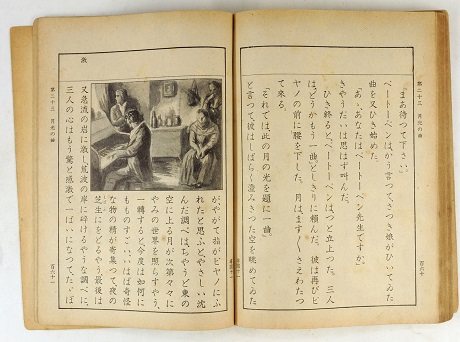 第二十三 月光の曲
百六十
「まあ待つて下さい。」
ベートーベンは、かう言つて、さつき娘がひいてゐた
曲を又ひき始めた。
「あゝ、あなたはベートーベン先生ですか。」
きやうだいは思はず叫んだ。
ひき終ると、ベートーベンは、つと立上つた。三人
は、「どうかもう一曲。」としきりに頼んだ。彼は再びピ
ヤノの前に腰を下した。月は、ます〳〵さえわたつ
て来る。
「それでは、此の月の光を題に一曲。」
と言つて、彼はしばらく澄みきつた空を眺めてゐた
激
が、やがて指がピヤノにふ
れたと思ふと、やさしい沈
んだ調べは、ちやうど東の
空に上る月が次第々々に
やみの世界を照らすやう、
一轉すると、今度は如何に
ももすごい、いはば奇怪
な物の精が寄集つて、夜の
芝生にをどるやう、最後は
又急流の岩に激し、荒波の岸に碎けるやうな調べに、
三人の心はもう驚と感激で一ぱいになつて、たゞぼ
第二十三 月光の曲
百六十一